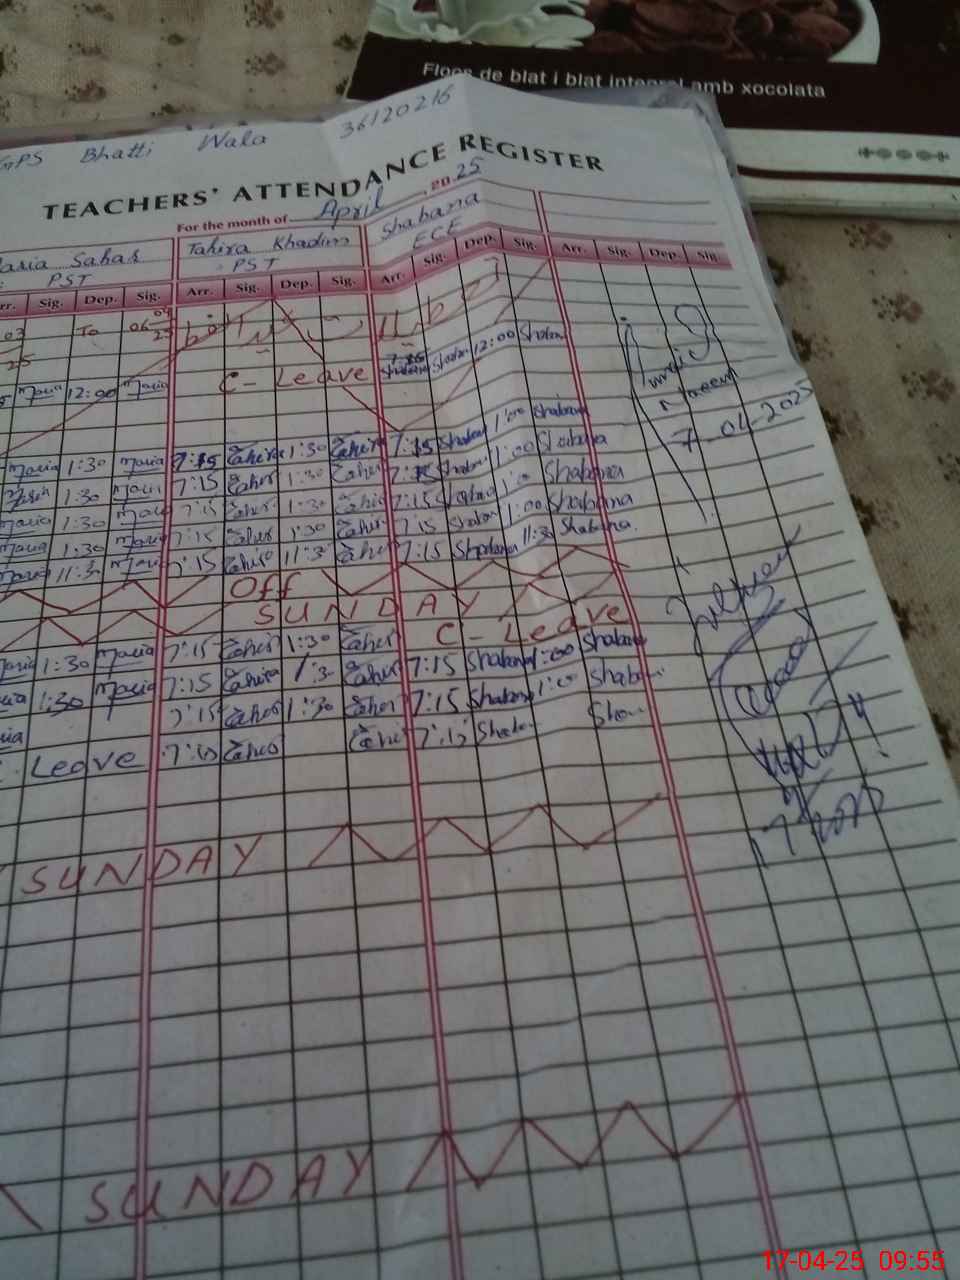 Flocs de blat i blat integral amb xocolata
GPS Bhatti Wala 36120216
TEACHERS' ATTENDANCE REGISTER
For the month of April 2025
Maria Sahar Tahira Khadim Shabana
PST PST ECE
Arr. Sig. Dep. Sig. Arr. Sig. Dep. Sig. Arr. Sig. Dep. Sig. Arr. Sig. Dep. Sig.
03 To 06 04
25 25
Maria 12:00 Maria C- Leave Shabana 12:00 Shabana
Naeem
7-04-2025
Maria 1:30 Maria 7:15 Tahira 1:30 Tahira 7:15 Shabana 1:00 Shabana
Maria 1:30 Maria 7:15 Taher 1:30 Taher 7:15 Shabana 1:00 Shabana
Maria 1:30 Maria 7:15 Taher 1:30 Taher 7:15 Shabana 1:00 Shabana
Maria 1:30 Maria 7:15 Taher 1:30 Taher 7:15 Shabana 1:00 Shabana
Maria 11:30 Maria 7:15 Taher 11:30 Taher 7:15 Shabana 11:30 Shabana
Off
SUNDAY
Maria 1:30 Maria 7:15 Taher 1:30 Taher C- Leave
Maria 1:30 Maria 7:15 Tahira 1:30 Taher 7:15 Shabana 1:00 Shabana
7:15 Taher 1:30 Taher 7:15 Shabana 1:00 Shabana
C- Leave 7:15 Taher Taher 7:15 Shaban Sha
SUNDAY
SUNDAY
17-04-25 09:55